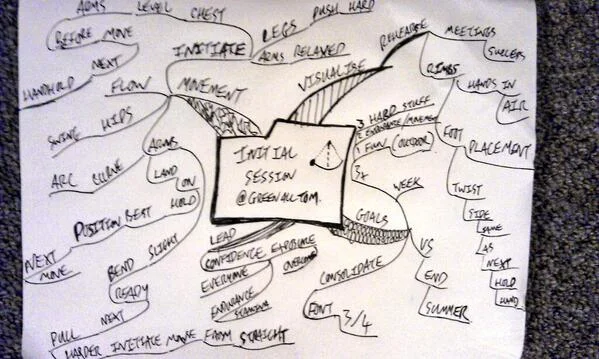 INITIAL
SESSION
@GREENALLTOM.
MOVEMENT
INITIATE
ARMS LEVEL CHEST
LEGS PUSH HARD
ARMS RELAXED
BEFORE MOVE
NEXT
HANDHOLD
FLOW
SWING HIPS
ARC CURVE
ARMS
LAND ON
HOLD
POSITION BEST
NEXT
MOVE
BEND SLIGHT
READY
NEXT
PULL
HARDER INITIATE MOVE FROM STRAIGHT
VISUALISE
REHEARSE
MEETINGS
SUCCESS
CLIMBS
HANDS IN
AIR
FOOT
PLACEMENT
TWIST
SIDE
SAME
AS
NEXT
HOLD
HAND
GOALS
3X
WEEK
3 HARD STUFF
2 ENDURANCE/MOVEMENT
1 FUN (OUTDOOR)
VS
END
SUMMER
CONSOLIDATE
FONT 3/4
LEAD
CONFIDENCE EXPOSURE
OVERCOME
EVERYONE
ENDURANCE
STAMINA